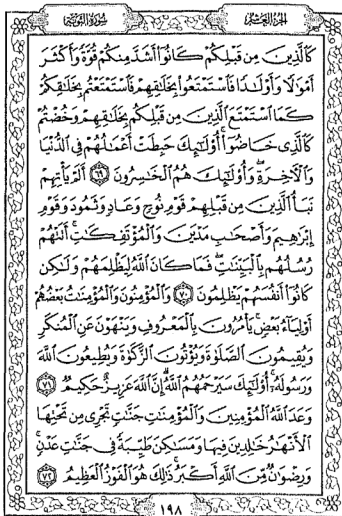 الجزء العاشر
سورة التوبة
كَالَّذِينَ مِن قَبْلِكُمْ كَانُوٓا۟ أَشَدَّ مِنكُمْ قُوَّةً وَأَكْثَرَ
أَمْوَٰلًا وَأَوْلَٰدًا فَٱسْتَمْتَعُوا۟ بِخَلَٰقِهِمْ فَٱسْتَمْتَعْتُم بِخَلَٰقِكُمْ
كَمَا ٱسْتَمْتَعَ ٱلَّذِينَ مِن قَبْلِكُم بِخَلَٰقِهِمْ وَخُضْتُمْ
كَٱلَّذِى خَاضُوٓا۟ أُو۟لَٰٓئِكَ حَبِطَتْ أَعْمَٰلُهُمْ فِى ٱلدُّنْيَا
وَٱلْءَاخِرَةِ وَأُو۟لَٰٓئِكَ هُمُ ٱلْخَٰسِرُونَ ٦٩ أَلَمْ يَأْتِهِمْ
نَبَأُ ٱلَّذِينَ مِن قَبْلِهِمْ قَوْمِ نُوحٍ وَعَادٍ وَثَمُودَ وَقَوْمِ
إِبْرَٰهِيمَ وَأَصْحَٰبِ مَدْيَنَ وَٱلْمُؤْتَفِكَٰتِ أَتَتْهُمْ
رُسُلُهُم بِٱلْبَيِّنَٰتِ فَمَا كَانَ ٱللَّهُ لِيَظْلِمَهُمْ وَلَٰكِن
كَانُوٓا۟ أَنفُسَهُمْ يَظْلِمُونَ ٧٠ وَٱلْمُؤْمِنُونَ وَٱلْمُؤْمِنَٰتُ بَعْضُهُمْ
أَوْلِيَآءُ بَعْضٍ يَأْمُرُونَ بِٱلْمَعْرُوفِ وَيَنْهَوْنَ عَنِ ٱلْمُنكَرِ
وَيُقِيمُونَ ٱلصَّلَوٰةَ وَيُؤْتُونَ ٱلزَّكَوٰةَ وَيُطِيعُونَ ٱللَّهَ
وَرَسُولَهُۥٓ أُو۟لَٰٓئِكَ سَيَرْحَمُهُمُ ٱللَّهُ إِنَّ ٱللَّهَ عَزِيزٌ حَكِيمٌ ٧١
وَعَدَ ٱللَّهُ ٱلْمُؤْمِنِينَ وَٱلْمُؤْمِنَٰتِ جَنَّٰتٍ تَجْرِى مِن تَحْتِهَا
ٱلْأَنْهَٰرُ خَٰلِدِينَ فِيهَا وَمَسَٰكِنَ طَيِّبَةً فِى جَنَّٰتِ عَدْنٍ
وَرِضْوَٰنٌ مِّنَ ٱللَّهِ أَكْبَرُ ذَٰلِكَ هُوَ ٱلْفَوْزُ ٱلْعَظِيمُ ٧٢
١٩٨